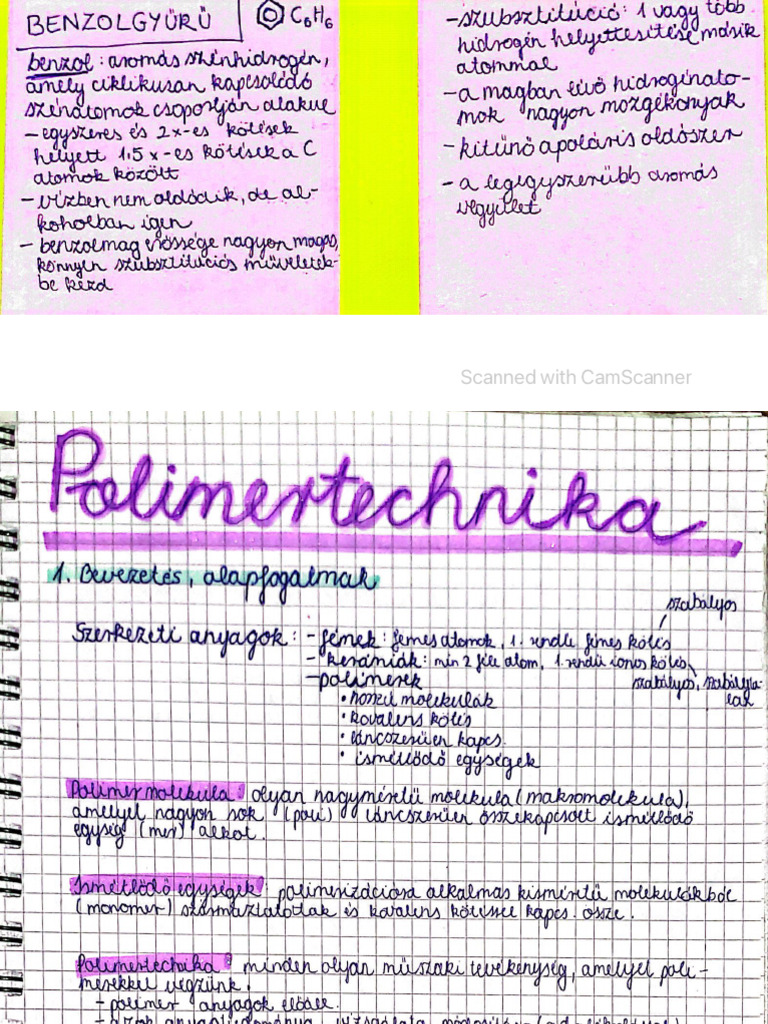 BENZOLGYŰRŰ C6H6
benzol: aromás szénhidrogén,
amely ciklikusan kapcsolódó
szénatomok csoportján alakul
-egyszeres és 2x-es kötések
helyett 1,5x-es kötések a C
atomok között
-vízben nem oldódik, de al-
koholban igen
-benzolmag erőssége nagyon magas,
könnyen szubsztitúciós műveletek-
be kezd
-szubsztitúció: 1 vagy több
hidrogén helyettesítése másik
atommal
-a magban lévő hidrogénato-
mok nagyon mozgékonyak
-kitűnő apoláris oldószer
-a legegyszerűbb aromás
vegyület
Scanned with CamScanner
Polimertechnika
1. Bevezetés, alapfogalmak
szabályos
Szerkezeti anyagok: -fémek: fémes atomok, 1. rendű fémes kötés
-kerámiák: min 2 féle atom, 1. rendű ionos kötés
-polimerek szabályos, szabályta-
lan
• hosszú molekulák
• kovalens kötés
• láncszerűen kapcs.
• ismétlődő egységek
Polimer molekula: olyan nagyméretű molekula (makromolekula),
amelyet nagyon sok (poli) láncszerűen összekapcsolt ismétlődő
egység (mer) alkot.
Ismétlődő egységek: polimerizációra alkalmas kisméretű molekulákból
(monomer) származtatottak és kovalens kötéssel kapcs. össze.
Polimertechnika: minden olyan műszaki tevékenység, amelyet poli-
merekkel végzünk.
-polimer anyagok előáll.